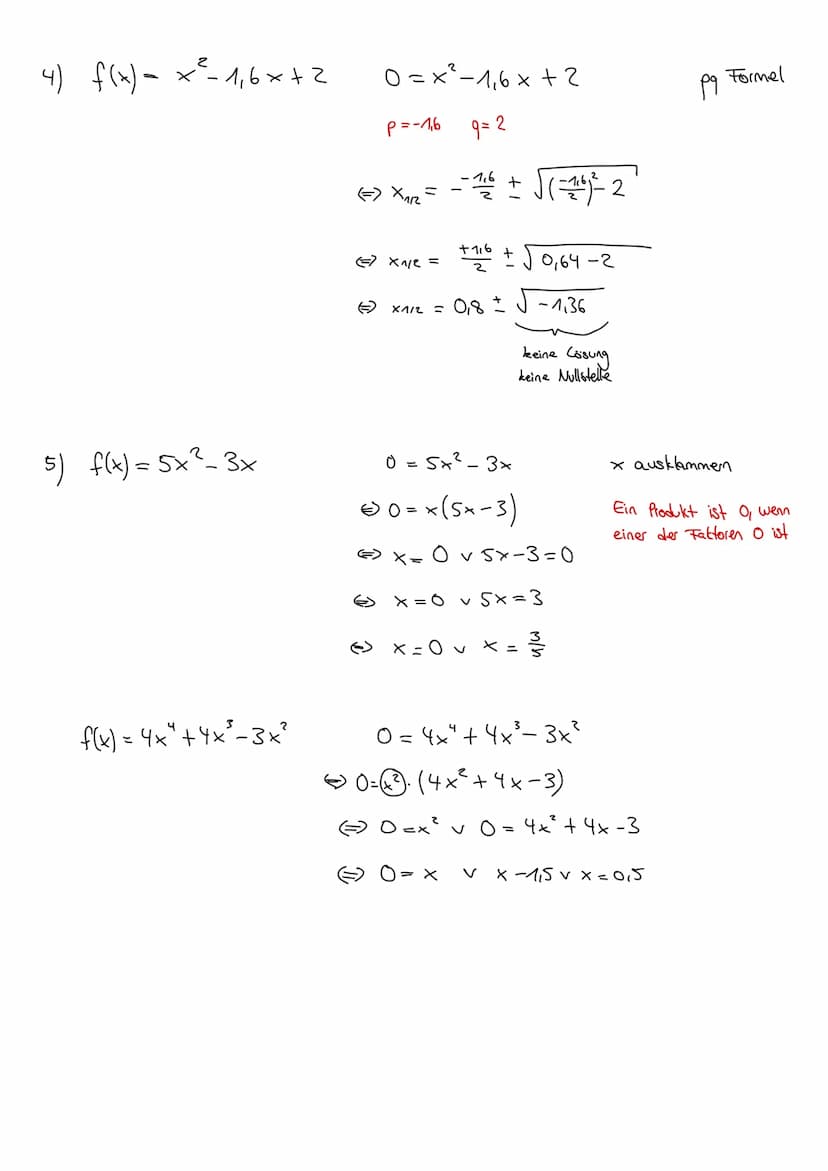 4) f(x) = x² - 1,6x + 2 0 = x² - 1,6x + 2 pq Formel
p = -1,6 q = 2
⇔ x₁/₂ = - -1,6/2 ± √((-1,6/2)² - 2
⇔ x₁/₂ = +1,6/2 ± √0,64 - 2
⇔ x₁/₂ = 0,8 ± √-1,36
keine Lösung
keine Nullstelle
5) f(x) = 5x² - 3x 0 = 5x² - 3x x ausklammern
⇔ 0 = x(5x - 3) Ein Produkt ist 0, wenn
einer der Faktoren 0 ist
⇔ x = 0 ∨ 5x - 3 = 0
⇔ x = 0 ∨ 5x = 3
⇔ x = 0 ∨ x = 3/5
f(x) = 4x⁴ + 4x³ - 3x² 0 = 4x⁴ + 4x³ - 3x²
⇔ 0 = x² · (4x² + 4x - 3)
⇔ 0 = x² ∨ 0 = 4x² + 4x - 3
⇔ 0 = x ∨ x - 1,5 ∨ x = 0,5